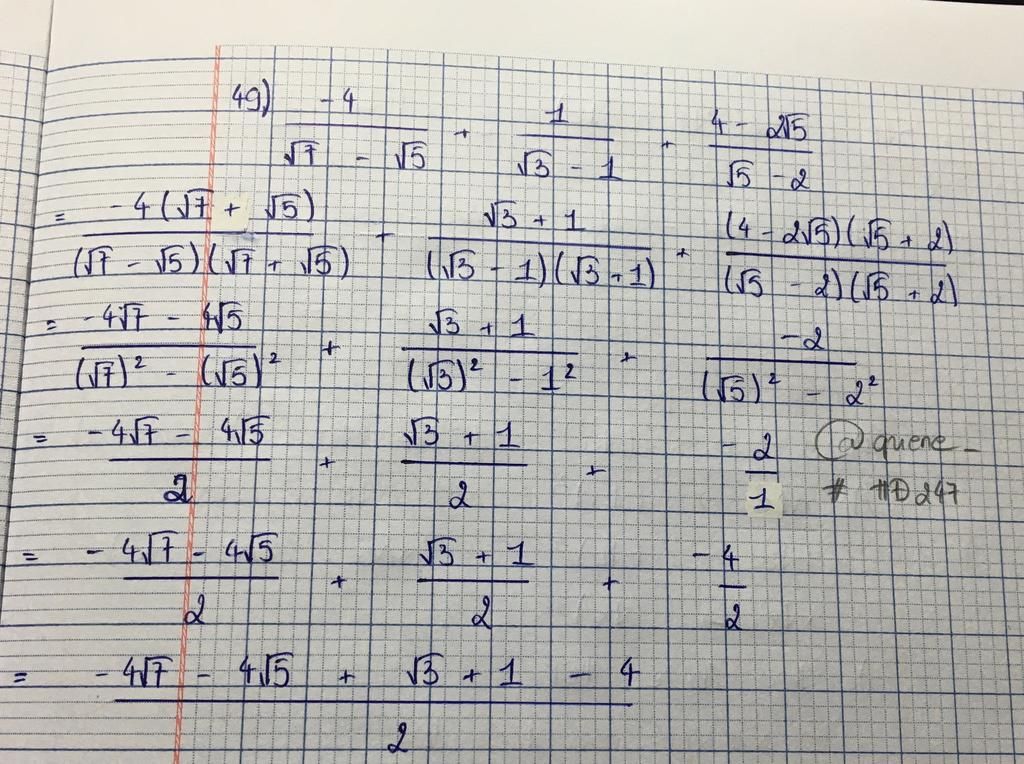 49) -4/(√7 - √5) + 1/(√3 - 1) + (4 - 2√5)/(√5 - 2)
= -4(√7 + √5)/((√7 - √5)(√7 + √5)) + (√3 + 1)/((√3 - 1)(√3 + 1)) + (4 - 2√5)(√5 + 2)/((√5 - 2)(√5 + 2))
= (-4√7 - 4√5)/((√7)² - (√5)²) + (√3 + 1)/((√3)² - 1²) + -2/((√5)² - 2²)
= (-4√7 - 4√5)/2 + (√3 + 1)/2 + -2/1 @quene_
# #Đ247
= (-4√7 - 4√5)/2 + (√3 + 1)/2 + -4/2
= (-4√7 - 4√5 + √3 + 1 - 4)/2